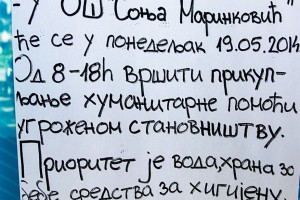 -У ОШ "Соња Маринковић"
ће се у понедељак 19.05.2014
Од 8-18h вршити прикуп-
љање хуманитарне помоћи
угроженом становништву.
Приоритет је вода, храна за
бебе средства за хигијену,